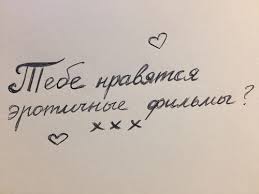 Тебе нравятся
эротичные фильмы?
xxx